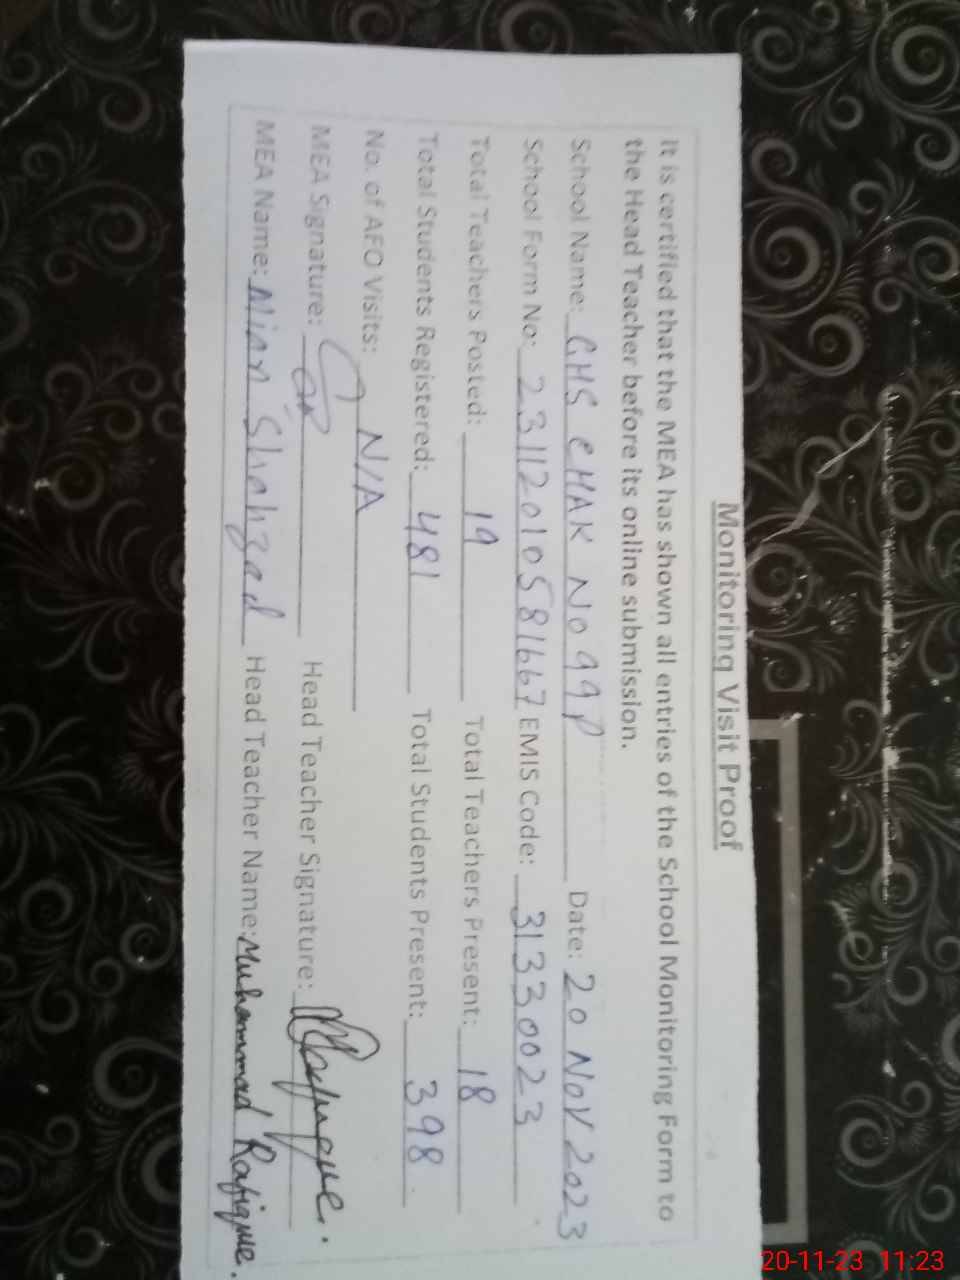 Monitoring Visit Proof
It is certified that the MEA has shown all entries of the School Monitoring Form to
the Head Teacher before its online submission.
School Name: GHS CHAK No 99P Date: 20 NOV 2023
School Form No: 23112010581667 EMIS Code: 31330023
Total Teachers Posted: 19 Total Teachers Present: 18
Total Students Registered: 481 Total Students Present: 398
No. of AFO Visits: N/A
MEA Signature: Head Teacher Signature: Rafique.
MEA Name: Mian Shahzad Head Teacher Name: Muhammad Rafique.
20-11-23 11:23